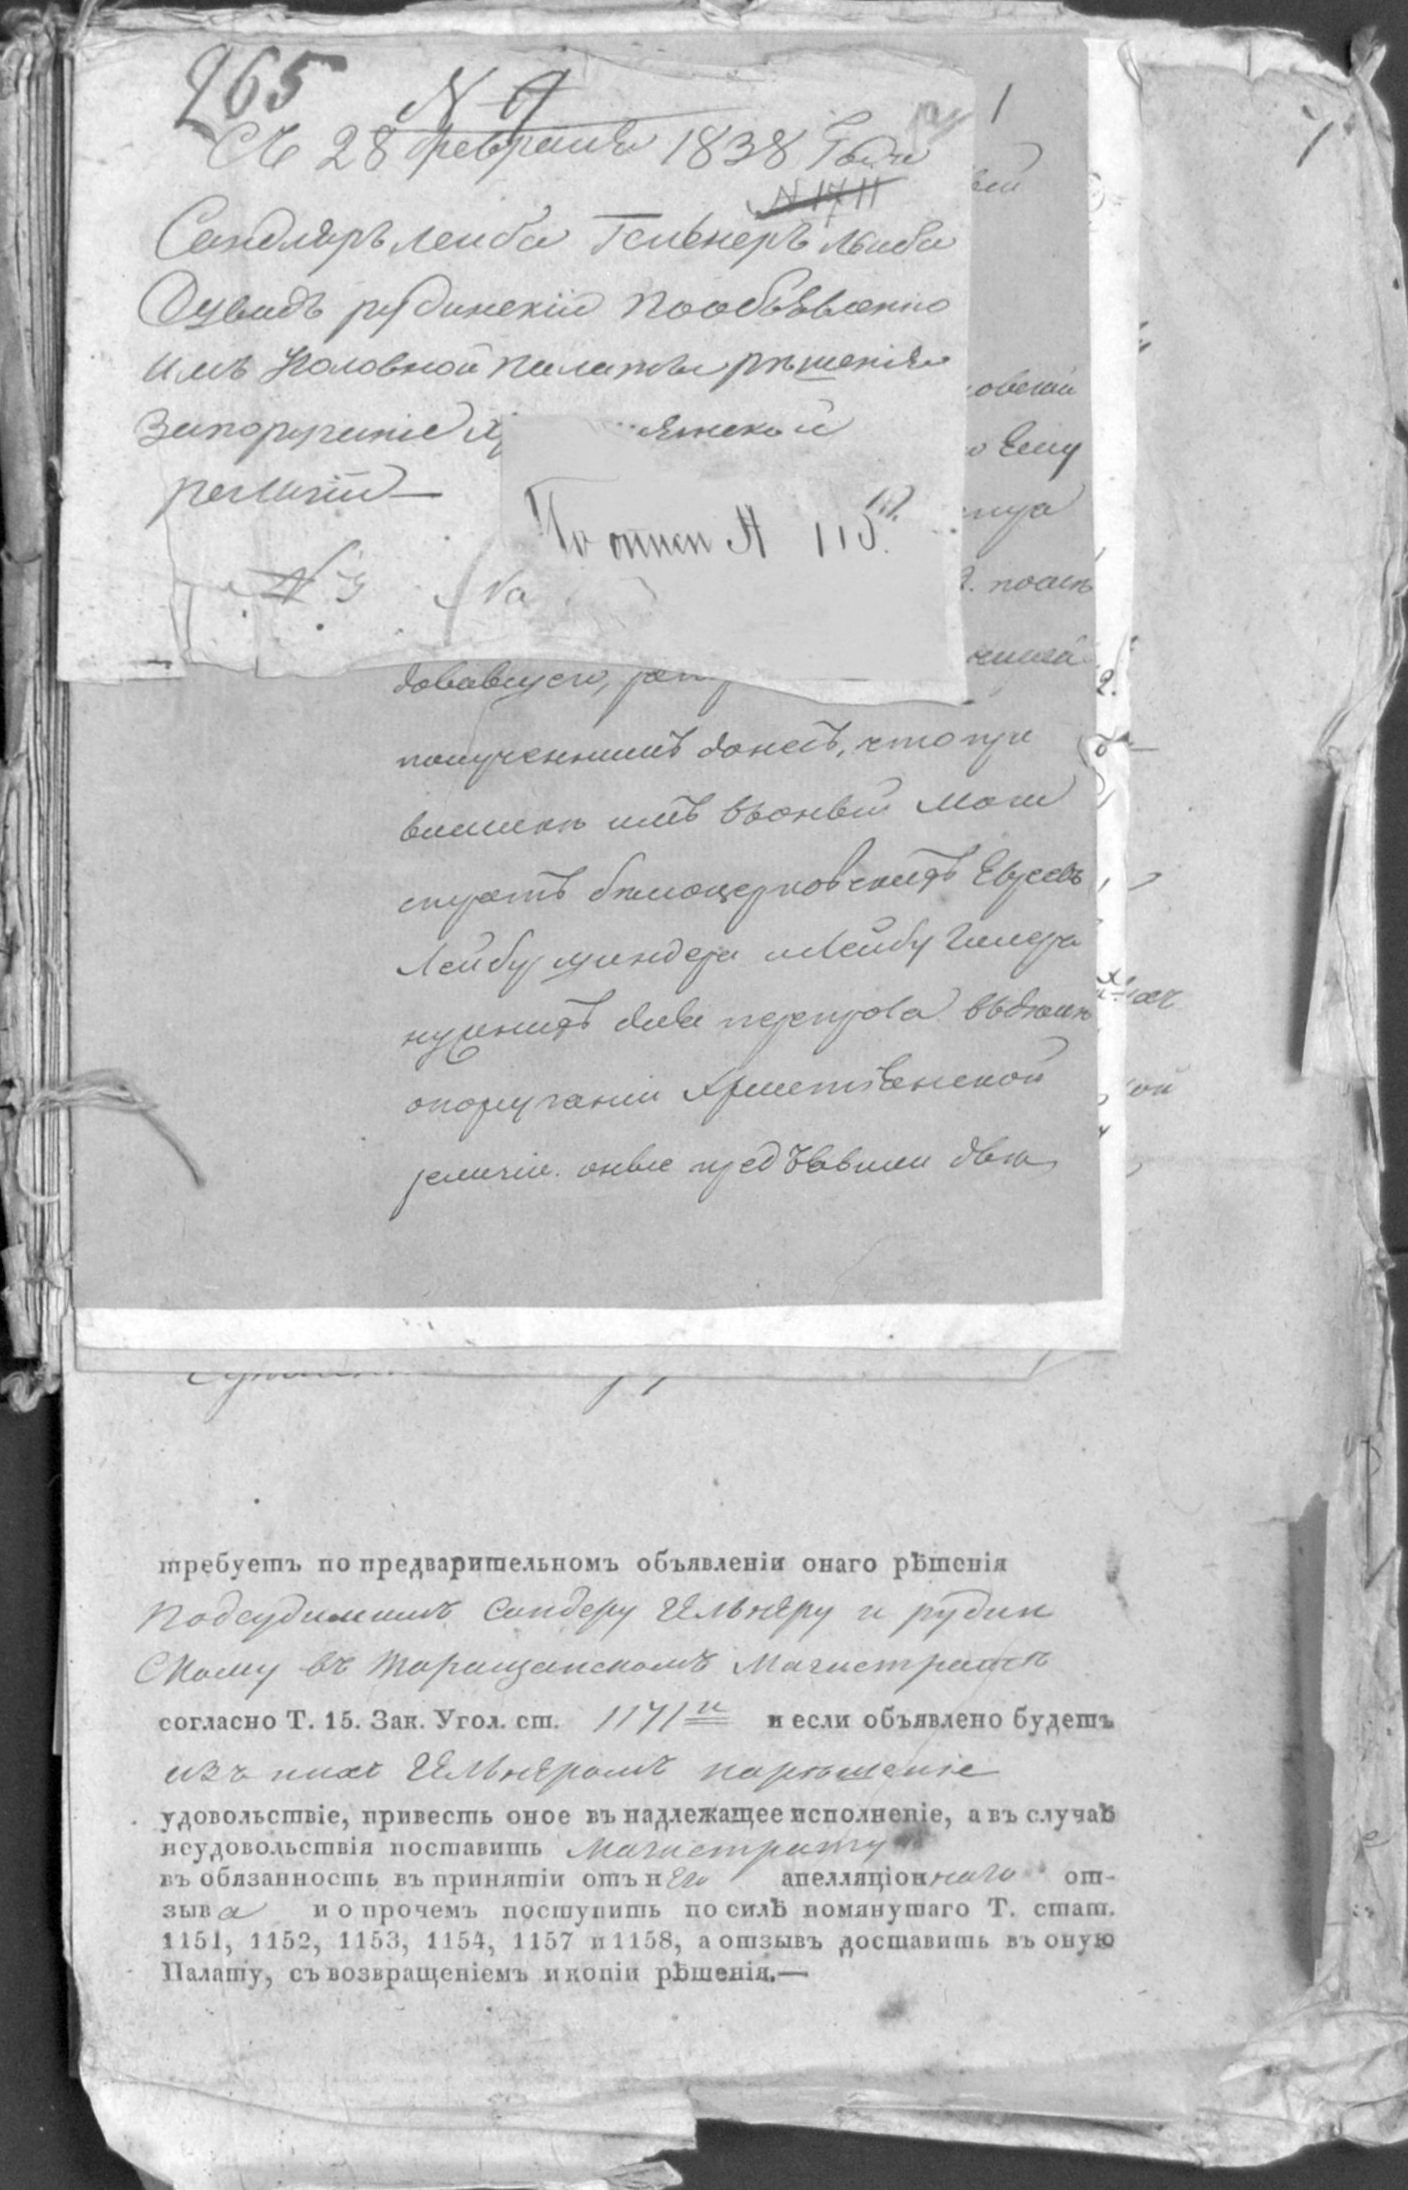 265
N 9
Съ 28 февраля 1838 Года
N 1711
Сандляръ Лейба Гельнеръ Лейба
Дувидъ рудинскій по объявленію
имъ Уголовной палаты рѣшенія
За поруганіе Хр янской
религіи—
По описи № 115.
N 9
No
1
1
овской
Ему
довавшего,
полученнымъ донесъ, что при
высылкѣ имъ въ оный Маги
стратъ бѣлоцерковскихъ Евреевъ
Лейбу и Лейбу Гилера
нужныхъ для въ дѣлѣ
о поруганіи Христіянской
религіи. оные предъявили
требуетъ по предварительномъ объявленіи онаго рѣшенія
Подсудимымъ Сандеру Гельнеру и рудин
Скому въ Таращанскомъ Магистратѣ
согласно Т. 15. Зак. Угол. ст. 1171й и если объявлено будетъ
изъ нихъ Гельнеромъ на рѣшеніе
удовольствіе, привесть оное въ надлежащее исполненіе, а въ случаѣ
неудовольствія поставить Магистрату
въ обязанность въ принятіи отъ него апелляціоннаго от-
зыва и о прочемъ поступить по силѣ помянутаго Т. стат.
1151, 1152, 1153, 1154, 1157 и 1158, а отзывъ доставить въ оную
Палату, съ возвращеніемъ и копіи рѣшенія.—